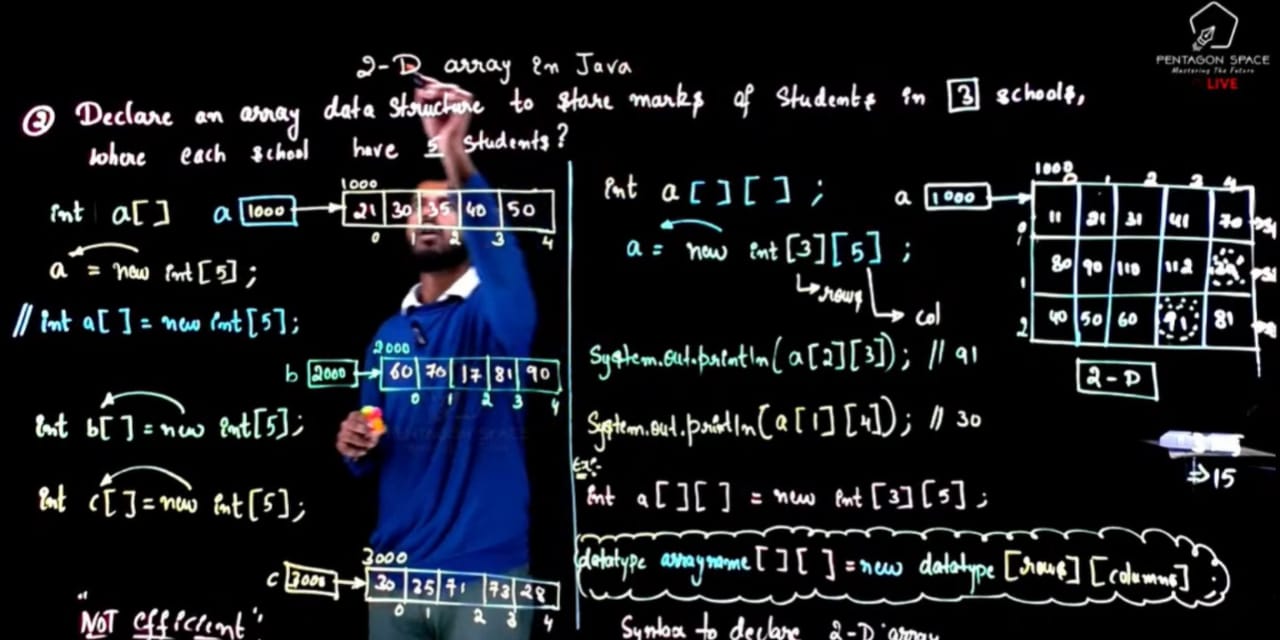 PENTAGON SPACE
Mastering The Future
LIVE
2-D array in Java
② Declare an array data structure to store marks of students in 3 schools,
where each school have 5 students?
int a[]
a 1000
1000
21 30 35 40 50
0 1 2 3 4
a = new int[5];
// int a[ ] = new int[5];
2000
b 2000
60 70 17 81 90
0 1 2 3 4
int b[ ] = new int[5];
int c[ ] = new int[5];
3000
c 3000
30 35 71 73 28
0 1 2 3 4
"NOT efficient"
int a[][];
a = new int[3][5];
rows
col
a 1000
1000
0 1 2 3 4
0 11 21 31 41 70
1 80 90 110 112
2 40 50 60 91 81
2-D
System.out.println(a[2][3]); // 91
System.out.println(a[1][4]); // 30
⇒ 15
Ex:-
int a[][] = new int[3][5];
datatype arrayname[][] = new datatype [rows][columns];
Syntax to declare 2-D array
PENTAGON SPACE